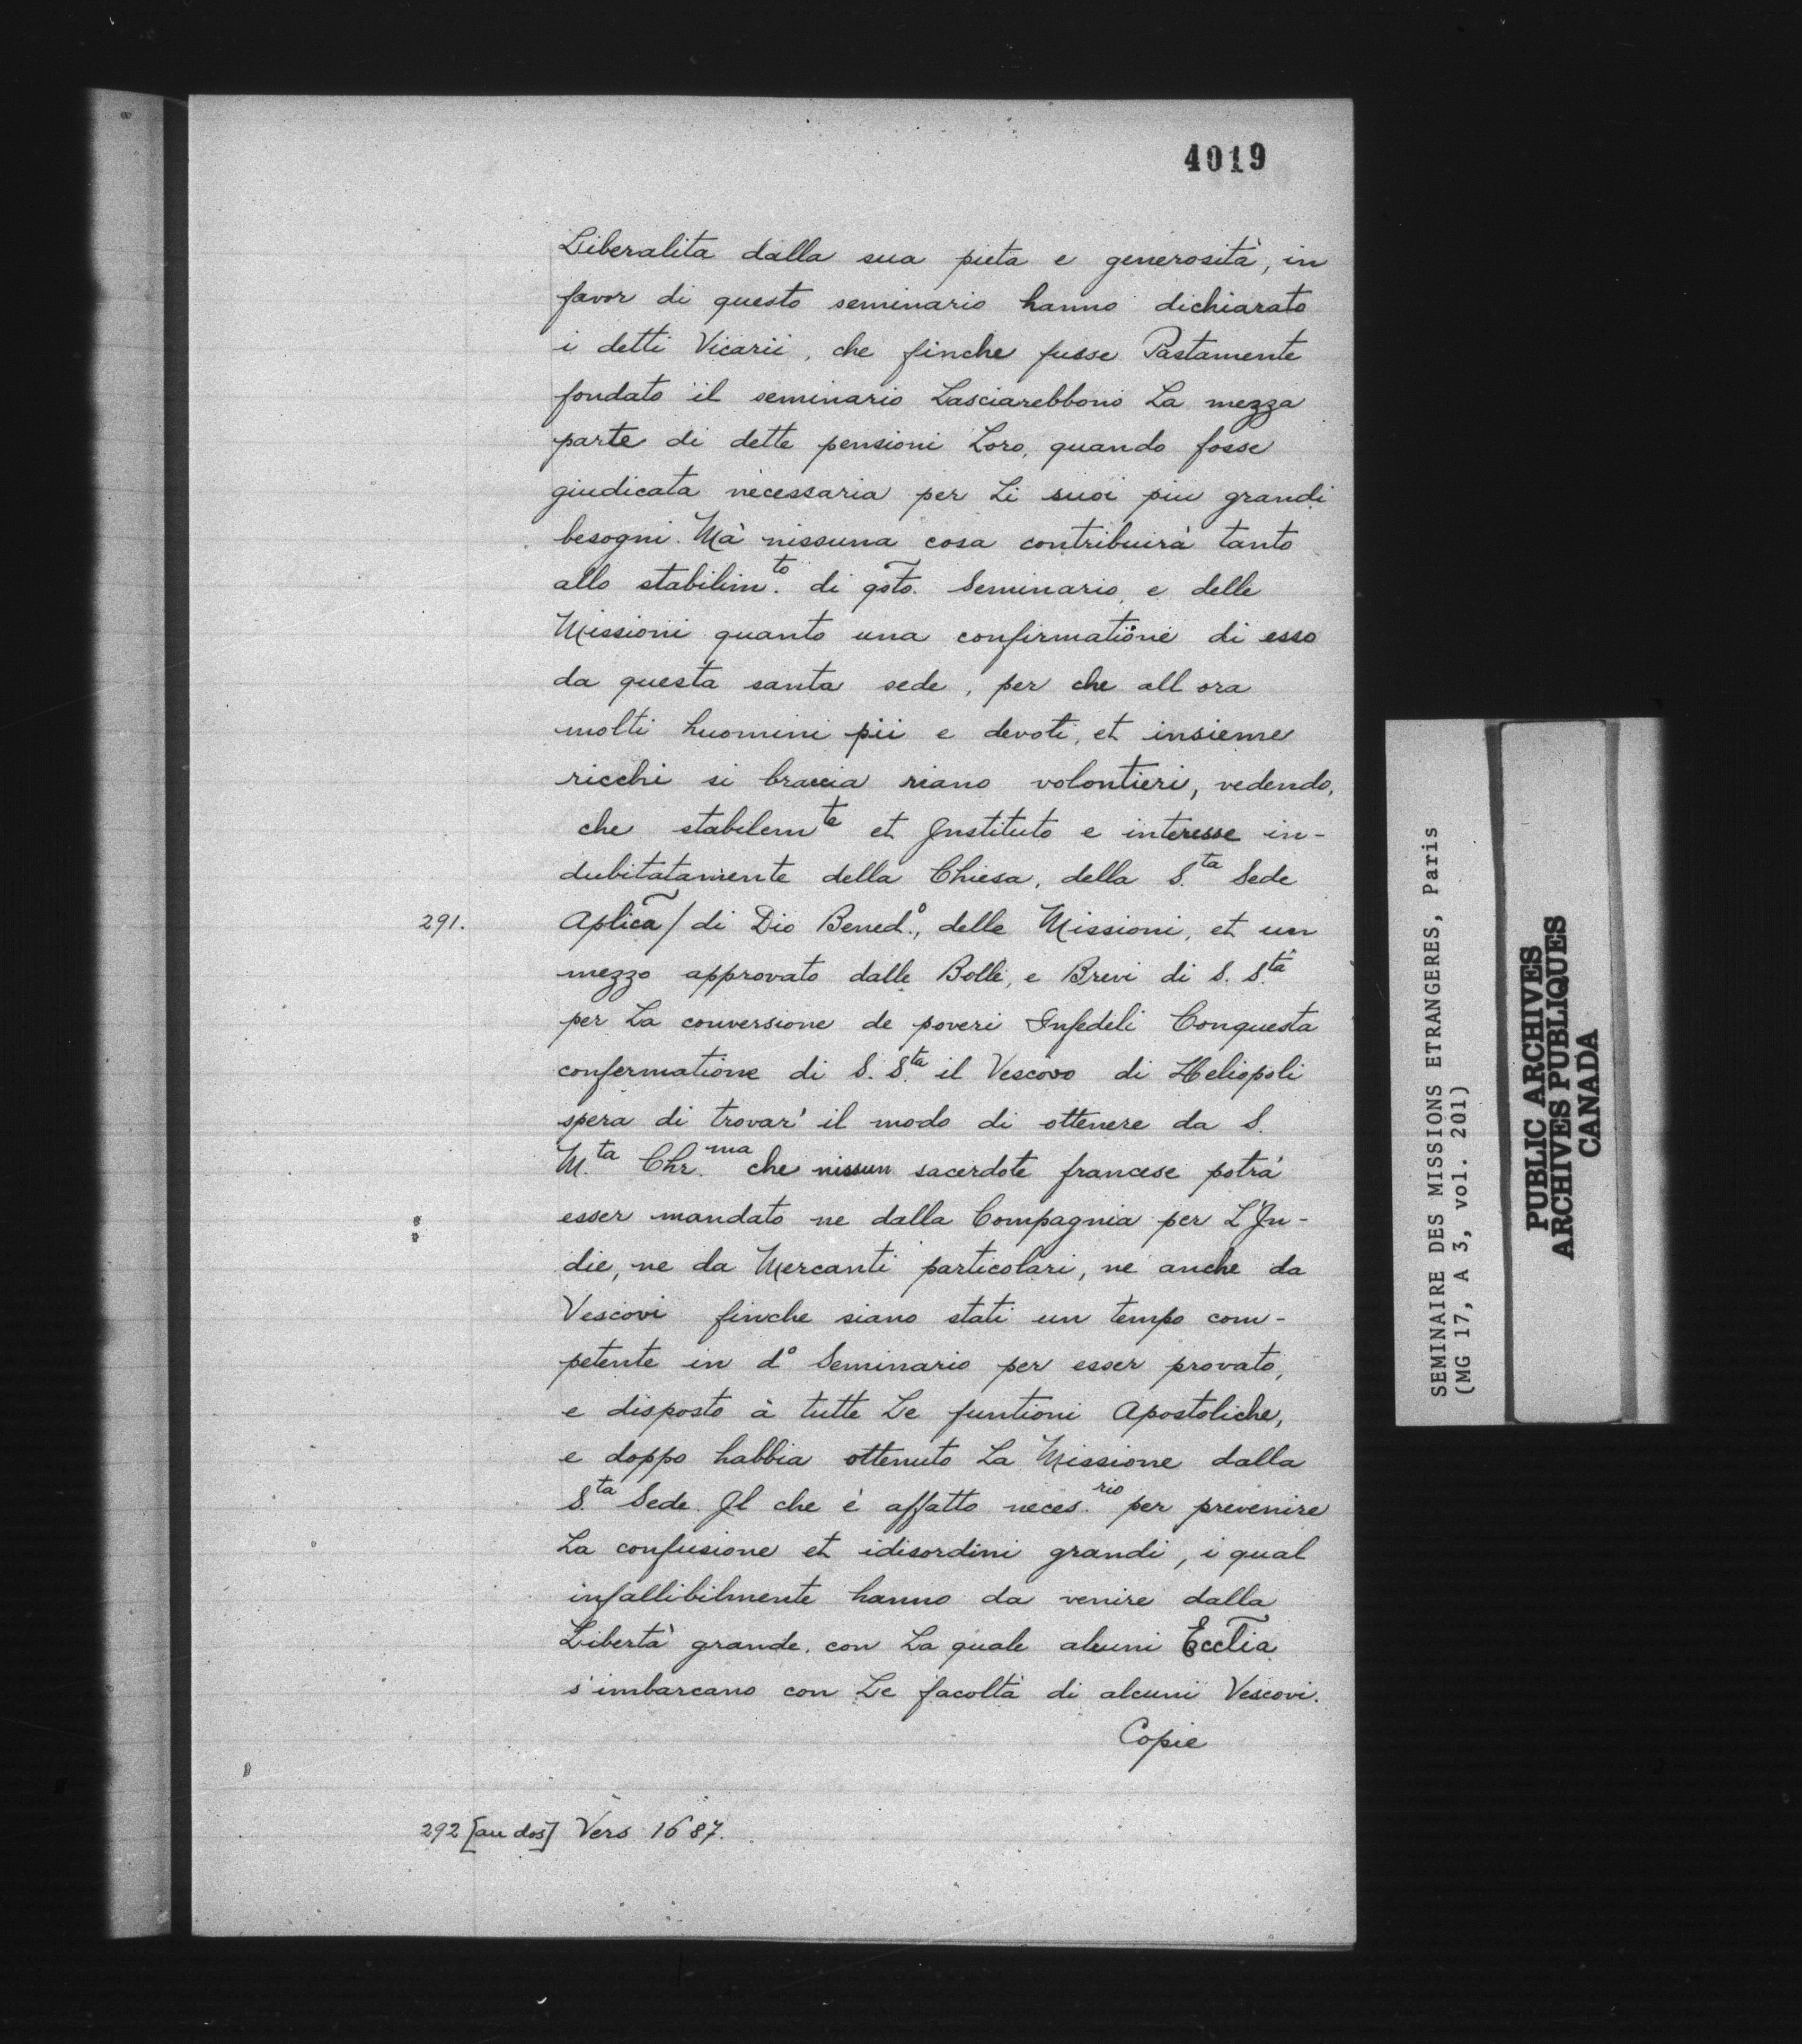 4019
Liberalita dalla sua pieta e generosità, in
favor di questo seminario hanno dichiarato
i detti Vicarii, che finche fusse Pastamente
fondato il seminario Lasciarebbono La mezza
parte di dette pensioni Loro, quando fosse
giudicata necessaria per Li suoi piu grandi
besogni. Mà nissuna cosa contribuirà tanto
allo stabilim.to di qsto. Seminario e delle
Missioni quanto una confirmatione di esso
da questa santa sede, per che all ora
molti huomini pii e devoti, et insieme
ricchi si braccia riano volontieri, vedendo,
che stabilem te et Instituto e interesse in-
dubitatamente della Chiesa, della S.ta Sede
291. Aplica / di Dio Bened.o, delle Missioni, et un
mezzo approvato dalle Bolle, e Brevi di S. S.tà
per La conversione de poveri Infedeli Conquesta
confermatione di S. S.ta il Vescovo di Heliopoli
spera di trovar' il modo di ottenere da S.
M.ta Chr.ma che nissun sacerdote francese potrà
esser mandato ne dalla Compagnia per L'In-
die, ne da Mercanti particolari, ne anche da
Vescovi finche siano stati un tempo com-
petente in do Seminario per esser provato,
e disposto à tutte Le funtioni Apostoliche,
e doppo habbia ottenuto La Missione dalla
S.ta Sede. Il che è affatto neces.rio per prevenire
La confusione et idisordini grandi, i qual
infallibilmente hanno da venire dalla
Libertà grande. con La quale alcuni Ecctia
s'imbarcano con Le facoltà di alcuni Vescovi.
Copie
292 [au dos] Vers 1687.
SEMINAIRE DES MISSIONS ETRANGERES, Paris
(MG 17, A 3, vol. 201)
PUBLIC ARCHIVES
ARCHIVES PUBLIQUES
CANADA